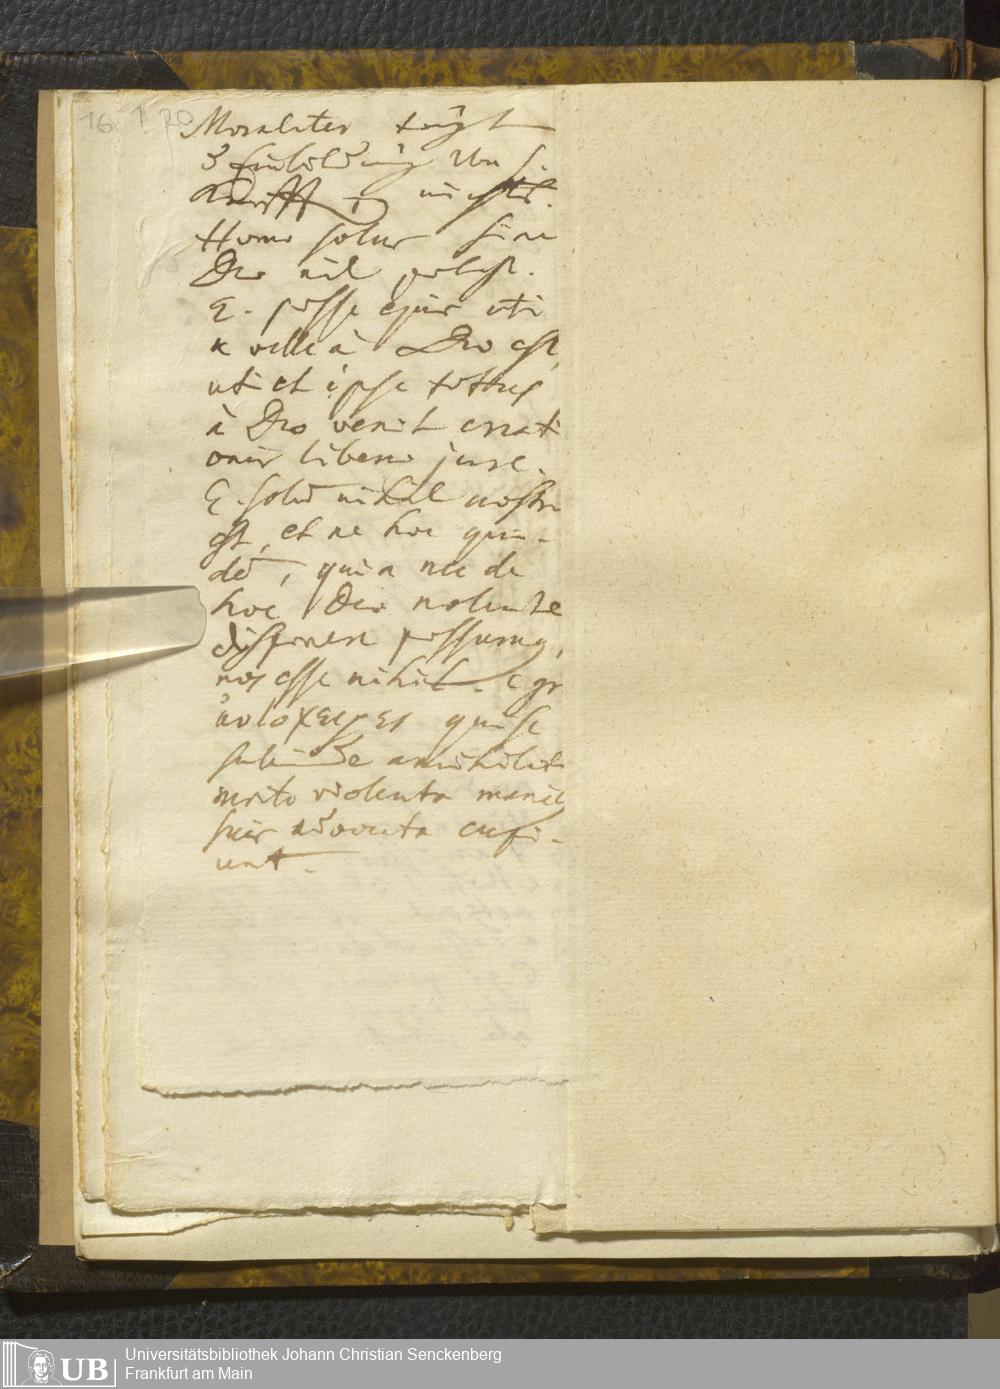 16
Moraliter
Homo solus sine
Deo nil potest.
E. posse ejus uti
et velle à Deo est,
uti et ipse totus
à Deo venit creati
onis libero jure.
E. solũ nihil nostri
est, et ne hoc qui-
dẽ, quia nec de
hoc Deo nolente
disponere possumus,
nos esse nihil.
αυτοχειρες qui se
subinde annihilat
merito violenta manu
suis advocata
unt.
UB Universitätsbibliothek Johann Christian Senckenberg
Frankfurt am Main